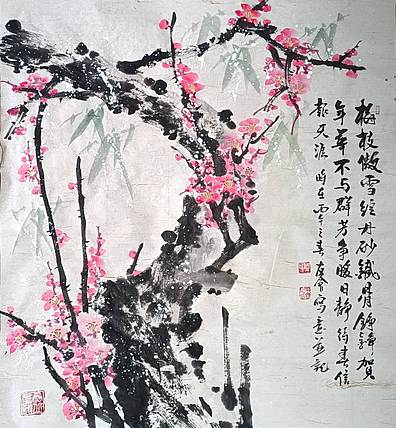 梅枝傲雪绽丹砂铁骨铮铮贺
年华不与群芳争暖日静待春信
报天涯时在
之春
写意并记